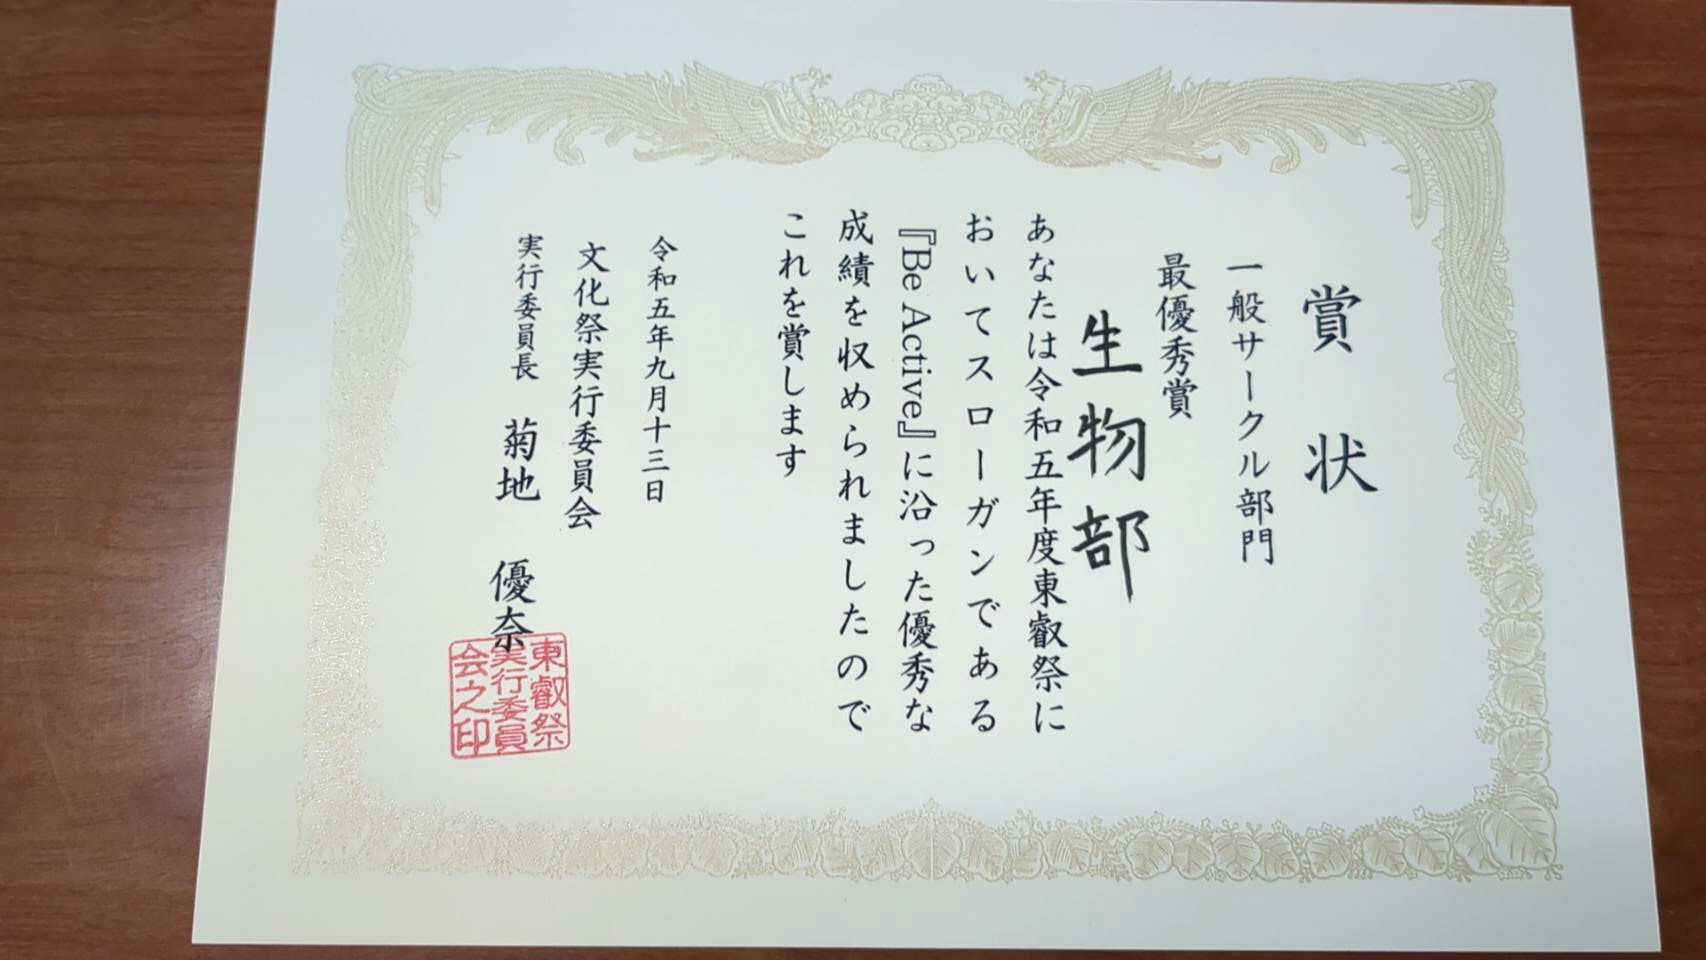 賞状
一般サークル部門
最優秀賞
生物部
あなたは令和五年度東叡祭に
おいてスローガンである
『Be Active』に沿った優秀な
成績を収められましたので
これを賞します
令和五年九月十三日
文化祭実行委員会
実行委員長 菊地 優奈
東叡祭
実行委員
会之印